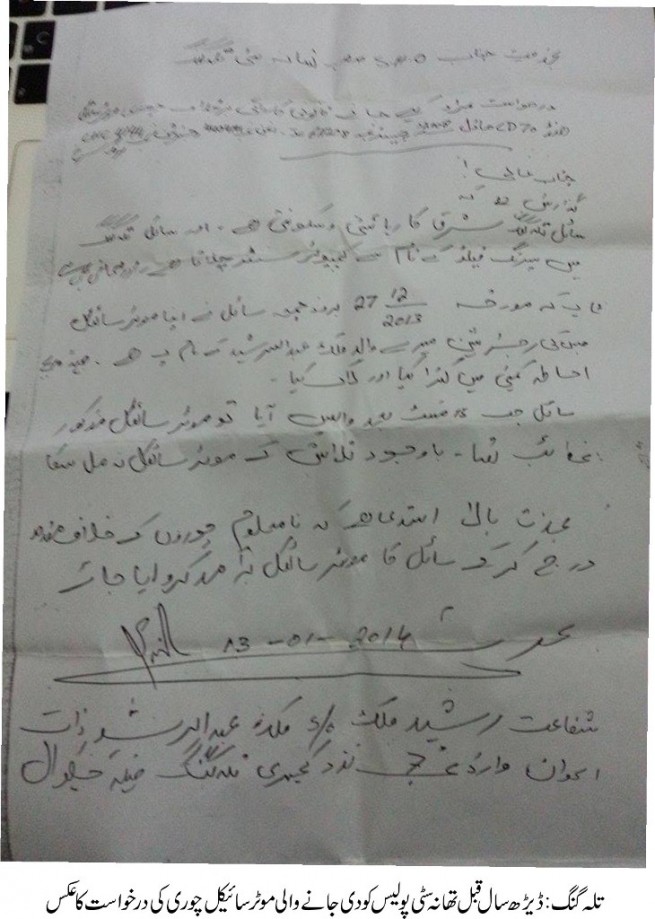 بخدمت جناب S.H.O صاحب تھانہ سٹی تلہ گنگ
درخواست بمراد کیے جانے قانونی کاروائی
ہنڈا CD 70 ماڈل
جناب عالی!
گزارش ہے کہ
سائل تلہ گنگ شرقا کا رہائشی و سکونتی ہے۔ اور سائل تلہ گنگ
میں سپرنگ فیلڈ کے نام سے کمپیوٹر سنٹر چلاتا ہے۔
یہ کہ مورخہ 27 12/2013 بروز جمعہ سائل نے اپنا موٹر سائیکل
جس کی رجسٹریشن میرے والد ملک عبدالرشید کے نام پہ ہے۔
احاطہ کمیٹی میں کھڑا کیا اور چلا گیا۔
سائل جب 15 منٹ بعد واپس آیا تو موٹر سائیکل مذکور
غائب تھا۔ باوجود تلاش کے موٹر سائیکل نہ مل سکا
بخدمت بالا استدعا ہے کہ نامعلوم چوروں کے خلاف مقدمہ
درج کر کے سائل کا موٹر سائیکل برآمد کروایا جائے
13-01-2014
شفاعت رشید ملک s/o ملک عبدالرشید ذات
اعوان وارڈ نمبر 7 نزد کچہری تلہ گنگ ضلع چکوال
تلہ گنگ: ڈیڑھ سال قبل تھانہ سٹی پولیس کو دی جانے والی موٹر سائیکل چوری کی درخواست کا عکس